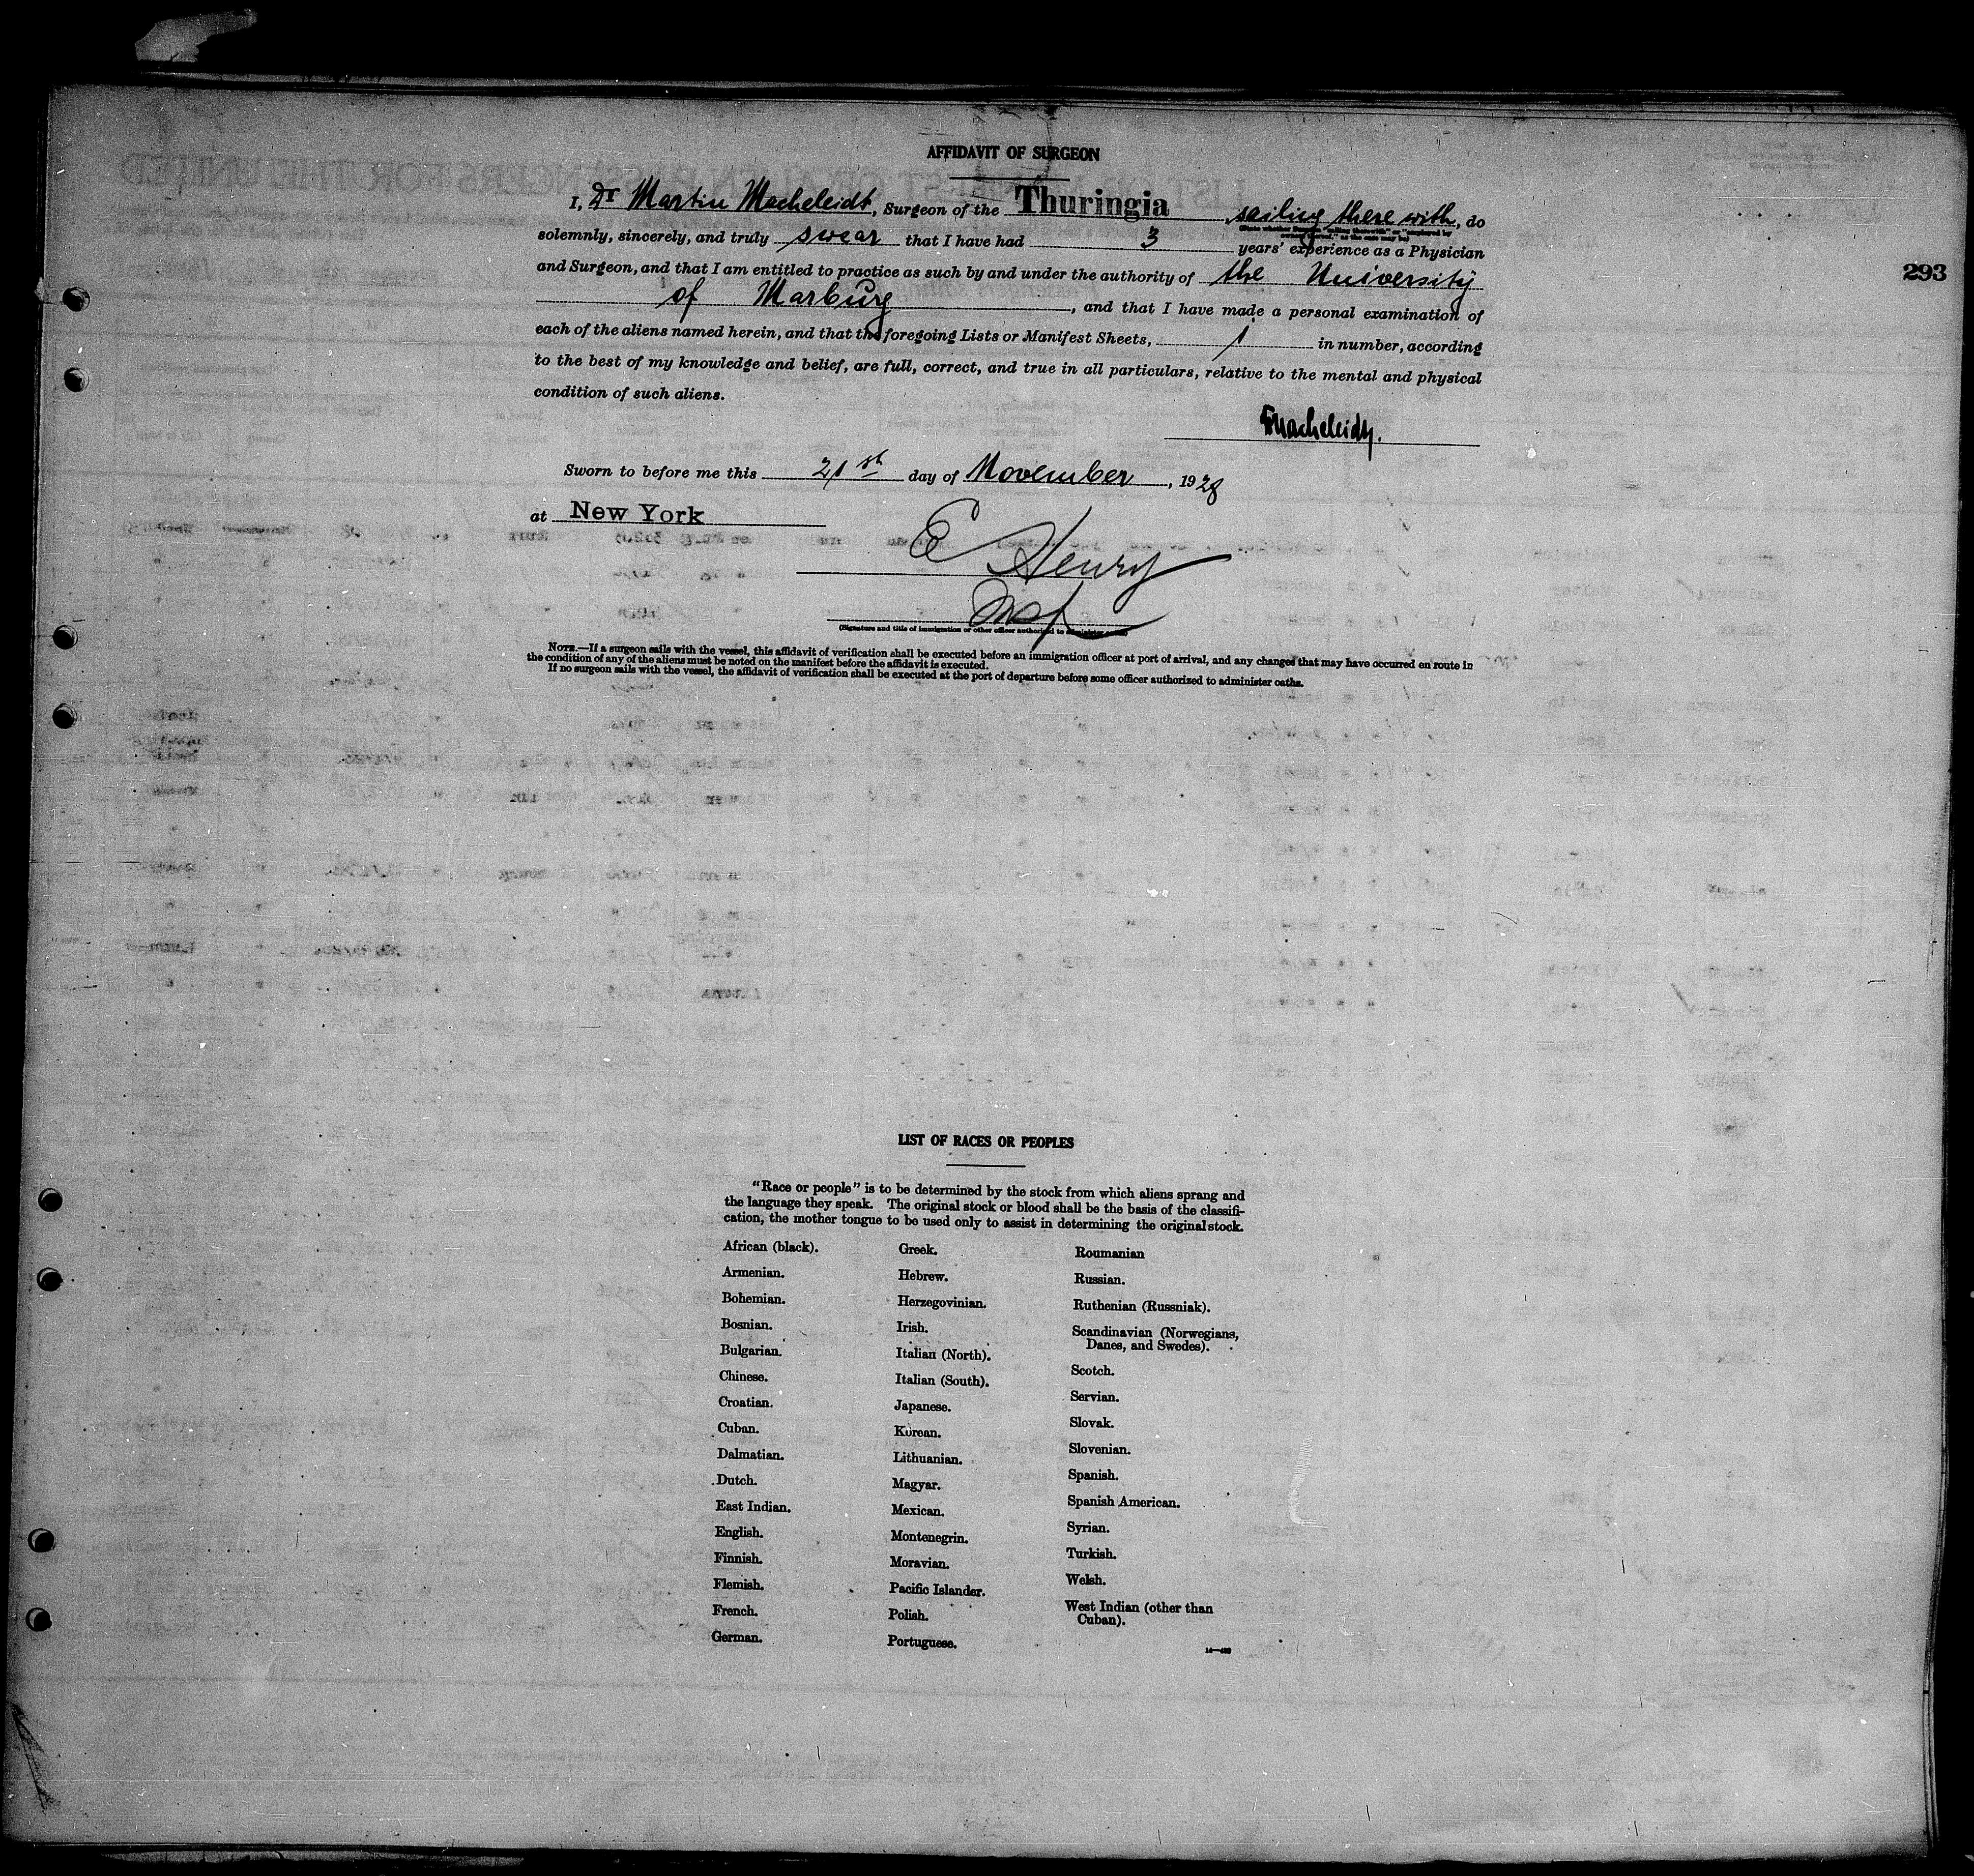 AFFIDAVIT OF SURGEON
I, Dr Martin Macheleidt, Surgeon of the Thuringia, sailing there with, do
solemnly, sincerely, and truly swear that I have had 3 years' experience as a Physician
and Surgeon, and that I am entitled to practice as such by and under the authority of the University
of Marburg, and that I have made a personal examination of
each of the aliens named herein, and that the foregoing Lists or Manifest Sheets, 1 in number, according
to the best of my knowledge and belief, are full, correct, and true in all particulars, relative to the mental and physical
condition of such aliens.
Macheleidt.
Sworn to before me this 21st day of November, 1928
at New York
E Henry
Insp
(Signature and title of immigration or other officer authorized to administer oaths)
NOTE.—If a surgeon sails with the vessel, this affidavit of verification shall be executed before an immigration officer at port of arrival, and any changes that may have occurred en route in
the condition of any of the aliens must be noted on the manifest before the affidavit is executed.
If no surgeon sails with the vessel, the affidavit of verification shall be executed at the port of departure before some officer authorized to administer oaths.
293
LIST OF RACES OR PEOPLES
"Race or people" is to be determined by the stock from which aliens sprang and
the language they speak. The original stock or blood shall be the basis of the classifi-
cation, the mother tongue to be used only to assist in determining the original stock.
African (black).
Armenian.
Bohemian.
Bosnian.
Bulgarian.
Chinese.
Croatian.
Cuban.
Dalmatian.
Dutch.
East Indian.
English.
Finnish.
Flemish.
French.
German.
Greek.
Hebrew.
Herzegovinian.
Irish.
Italian (North).
Italian (South).
Japanese.
Korean.
Lithuanian.
Magyar.
Mexican.
Montenegrin.
Moravian.
Pacific Islander.
Polish.
Portuguese.
Roumanian
Russian.
Ruthenian (Russniak).
Scandinavian (Norwegians,
Danes, and Swedes).
Scotch.
Servian.
Slovak.
Slovenian.
Spanish.
Spanish American.
Syrian.
Turkish.
Welsh.
West Indian (other than
Cuban).